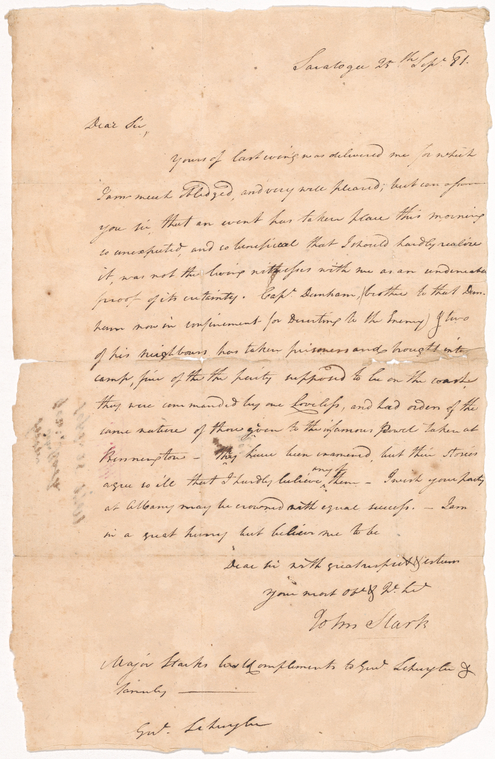 Saratoga 25th Sepr 81.
Dear Sir,
Yours of last evening was delivered me for which
I am much obledged, and very well pleased; but can assure
you sir, that an event has taken place this morning
so unexpected and so beneficial that I should hardly realize
it, was not the living witnesses with me as an undeniable
proof of its certainty. Capt. Dunham (brother to that Dun-
ham now in confinement for Deserting to the Enemy) & two
of his neighbours has taken prisoners and brought into
camp, five of the the party supposed to be on the
they were commanded by one Lovelass, and had orders of the
same nature of those given to the infamous taken at
Bennington - they have been examined, but their stories
agree so ill that I hardly believe any of them - I wish your party
at Albany may be crowned with equal success. - I am
in a great hurry but believe me to be
Dear sir with great respect & esteem
Your most Obt & Hl. St
John Stark
Major Starks complements to Genl Schuyler &
family
Genl. Schuyler